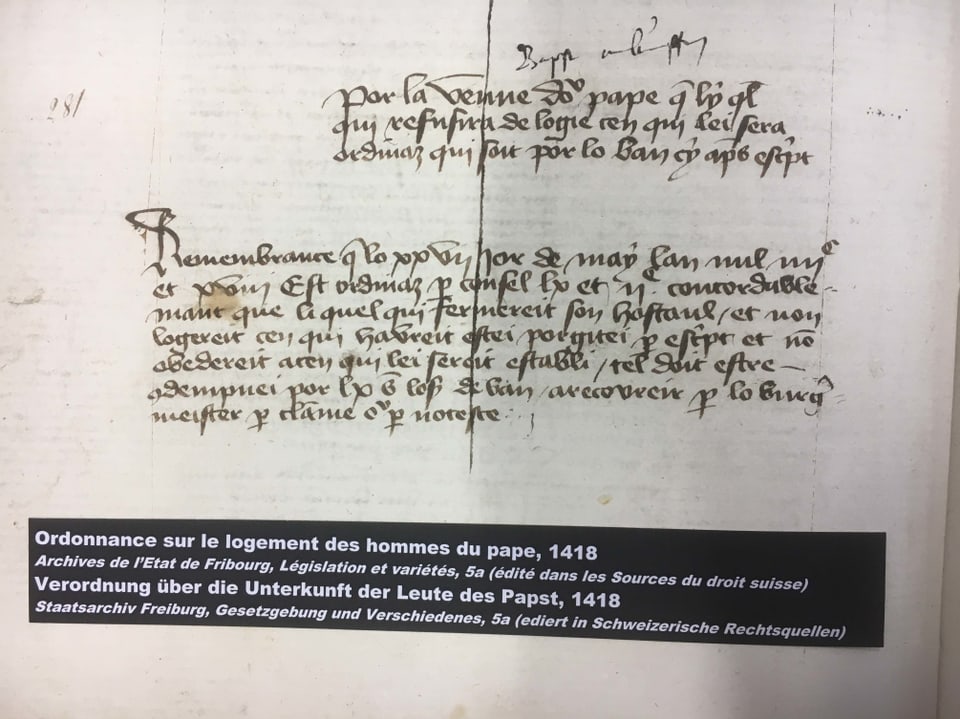 281
Por la venue dou pape q̄ ly ql̄
qui refusira de logie cen qui lei sera
ordinaz qui soit por lo ban cy ap̄s esc̄pt
Remembrance q̄ lo xxvii jor de may lan mil iiiiᶜ
et xviii Est ordinaz p̱ consel lx et iiᶜ concordable-
mant que li quel qui fermereit son hostaul / et non
logereit cen qui havreit estei porgitei p̱ esc̄pt et nō
obedereit a cen qui lei sereit establi / tel doit estre
ꝯdempnei por lx s̄ los̄ de ban / a recovreir p̱ lo burḡ
meister p̱ clame ou p̱ noteste
Ordonnance sur le logement des hommes du pape, 1418
Archives de l'Etat de Fribourg, Législation et variétés, 5a (édité dans les Sources du droit suisse)
Verordnung über die Unterkunft der Leute des Papst, 1418
Staatsarchiv Freiburg, Gesetzgebung und Verschiedenes, 5a (ediert in Schweizerische Rechtsquellen)